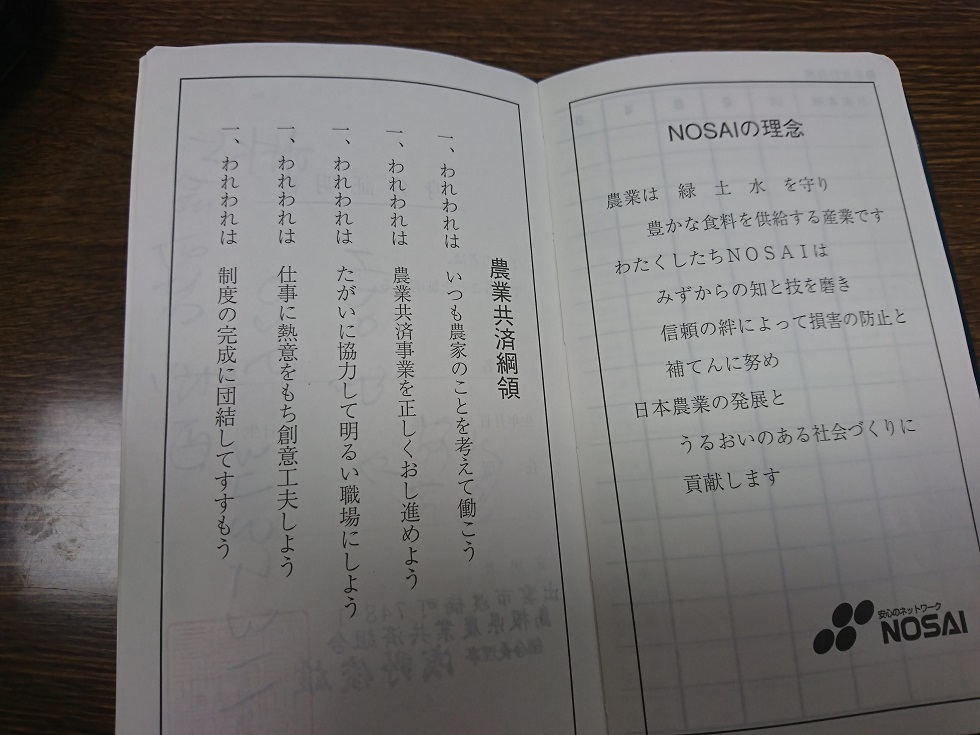 農業共済綱領
一、われわれは いつも農家のことを考えて働こう
一、われわれは 農業共済事業を正しくおし進めよう
一、われわれは たがいに協力して明るい職場にしよう
一、われわれは 仕事に熱意をもち創意工夫しよう
一、われわれは 制度の完成に団結してすすもう
NOSAIの理念
農業は 緑 土 水 を守り
豊かな食料を供給する産業です
わたくしたちNOSAIは
みずからの知と技を磨き
信頼の絆によって損害の防止と
補てんに努め
日本農業の発展と
うるおいのある社会づくりに
貢献します
安心のネットワーク
NOSAI